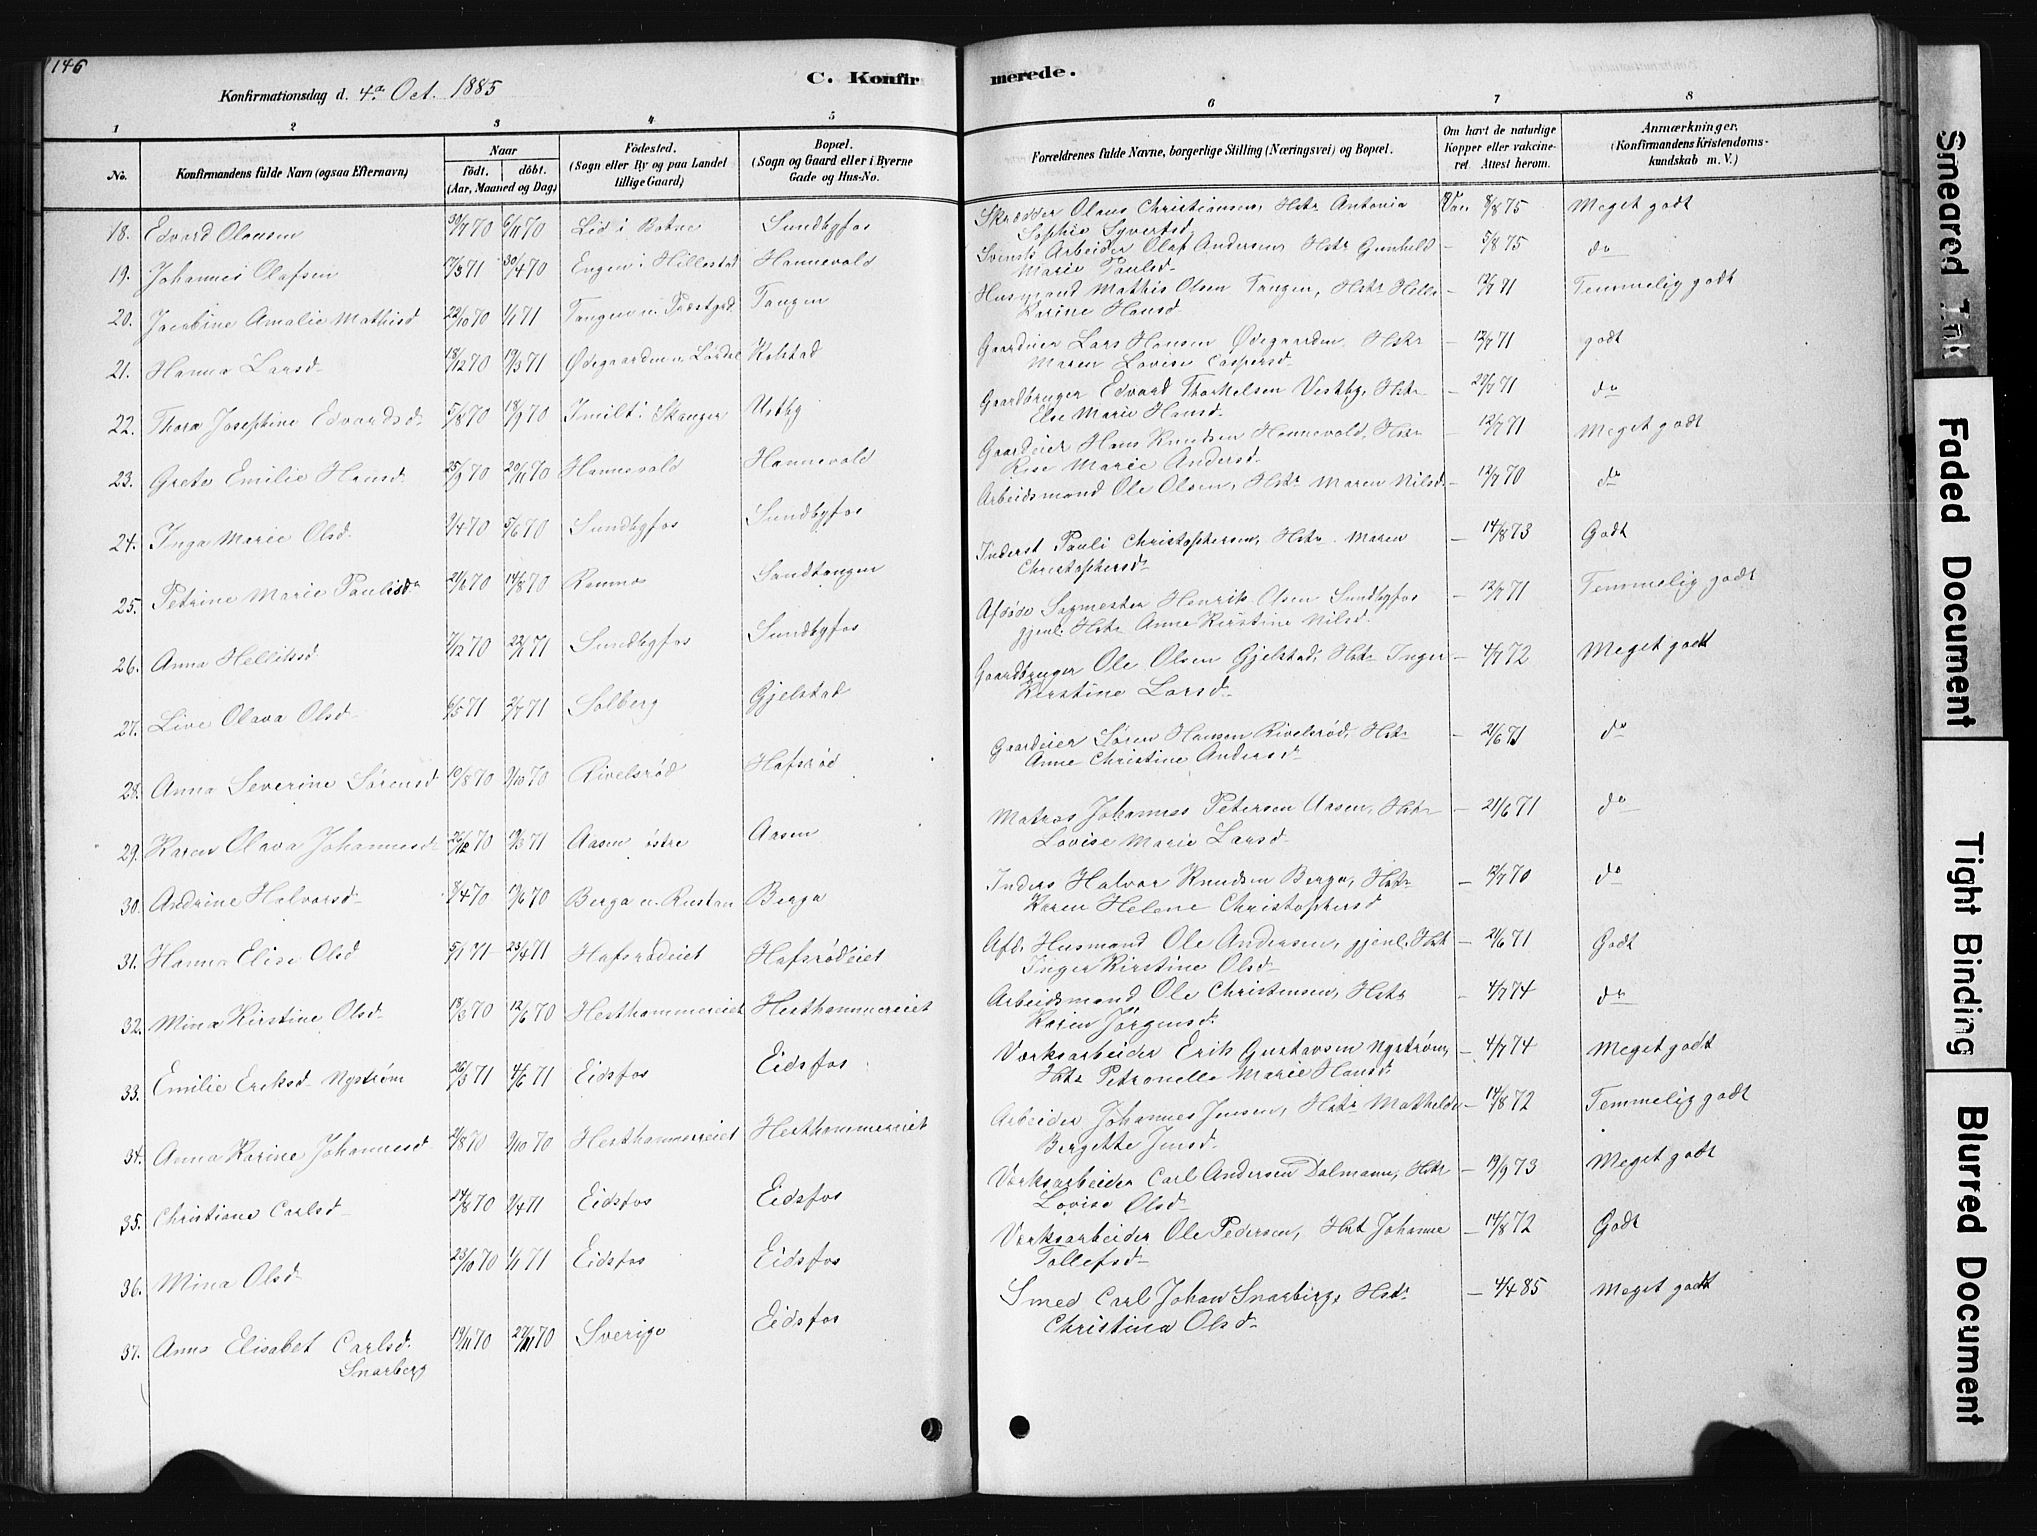 146
C. Konfirmerede.
Konfirmationsdag d. 4de Oct. 1885
1 2 3 4 5 6 7 8
No. Konfirmandens fulde Navn (ogsaa Efternavn) Naar født. døbt. (Aar, Maaned og Dag) Fødested. (Sogn eller By og paa Landet tillige Gaard) Bopæl. (Sogn og Gaard eller i Byerne Gade og Hus-No. Forældrenes fulde Navne, borgerlige Stilling (Næringsvei) og Bopæl. Om havt de naturlige Kopper eller vakcineret Attest herom. Anmærkninger. (Konfirmandens Kristendomskundskab m. V.)
18. Edvard Olausen 30/7 70 6/11 70 Lid i Botne Sundbyfos Skrædder Olaus Christiansen, Hstr Antonia Sophie Syvertsd. Vac. 8/8 75 Meget godt
19. Johannes Olafsen 17/3 71 30/4 70 Engen i Hillestad Hannevold Svensk Arbeider Olaf Andersen Hstr Gunhild Marie Paulsd. – 5/8 75 do
20. Jacobine Amalie Mathisd 22/10 70 1/1 71 Tangen u. Præstgrd Tangen Husmand Mathis Olsen Tangen, Hstr Helle Karine Hansd. – 12/7 71 Temmelig godt
21. Hanna Larsd. 18/12 70 19/3 71 Ødegaarden Kolstad Gaardeier Lars Hansen Ødegaarden Hstr Maren Lovise Caspersd. – 12/7 71 godt
22. Thora Josephine Edvardsd. 5/8 70 18/9 70 Imilt i Skauger Vestby Gaardbruger Edvard Thorkelsen Vestby, Hstr Else Marie Hansd. – 27/7 71 do
23. Grete Emilie Hansd. 25/9 70 20/11 70 Hannevold Hannevold Gaardeier Hans Knudsen Hannevold, Hstr Rise Marie Andersd. – 12/7 71 Meget godt
24. Inga Marie Olsd. 9/4 70 5/6 70 Sundbyfos Sundbyfos Arbeidsmand Ole Olsen, Hstr Maren Nilsd. – 12/7 70 do
25. Petrine Marie Paulisd. 21/6 70 14/8 70 Ramnes Sandtangen Inderst Pauli Christophersen, Hstr Maren Christophersd. – 14/8 73 Godt
26. Anna Helliksd 7/12 70 22/1 71 Sundbyfos Sundbyfos Afdøde Sagmester Henrik Olsen Sundbyfos gjenl. Hstr Anne Kirstine Nilsd. – 12/7 71 Temmelig godt
27. Live Olava Olsd. 6/5 71 2/7 71 Solberg Gjelstad Gaardbruger Ole Olsen Gjelstad, Hstr Inger Kirstine Larsd. – 4/7 72 Meget godt
28. Anna Severine Sørensd 19/8 70 9/10 70 Rivelsrød Hafsrød Gaardeier Søren Hansen Rivelsrød, Hstr Anne Christine Andersd. – 21/6 71 do
29. Karen Olava Johannesd. 26/12 70 19/3 71 Aasen østre Aasen Matros Johannes Petersen Aasen, Hstr Lovise Marie Larsd. – 21/6 71 do
30. Andrine Halvorsd. 8/4 70 19/6 70 Berga u. Rustan Berga Inders Halvor Knudsen Berga, Hstr Karen Helene Christophersd – 12/7 70 do
31. Hanna Elise Olsd 5/1 71 23/4 71 Hafsrødeiet Hafsrødeiet Afd. Husmand Ole Andersen, gjenl. Hstr Inger Kirstine Olsd. – 21/6 71 Godt
32. Mina Kirstine Olsd. 13/3 70 12/6 70 Hesthammereiet Hesthammereiet Arbeidsmand Ole Christensen, Hstr Karen Jørgensd. – 4/7 74 do
33. Emilie Eriksd. Nystrøm 26/3 71 4/6 71 Eidsfos Eidsfos Værksarbeider Erik Gustavsen Nystrøm, Hstr Petronelle Marie Hansd. – 4/7 74 Meget godt
34. Anna Karine Johannesd 2/8 70 9/10 70 Hesthammereiet Hesthammereiet Arbeider Johannes Jensen, Hstr Mathilde Bergette Jensd. – 14/8 72 Temmelig godt
35. Christiane Carlsd. 24/8 70 9/4 71 Eidsfos Eidsfos Værksarbeider Carl Andersen Dalmann, Hstr Lovise Olsd. – 19/9 73 Meget godt
36. Mina Olsd. 23/10 70 1/1 71 Eidsfos Eidsfos Værksarbeider Ole Pedersen, Hstr Johanne Tollefsd. – 14/8 72 Godt
37. Anna Elisabet Carlsd. Snarberg 19/11 70 27/11 70 Sverige Eidsfos Smed Carl Johan Snarberg, Hstr Christina Olsd. – 4/4 85 Meget godt
Smeared Ink
Faded Document
Tight Binding
Blurred Document